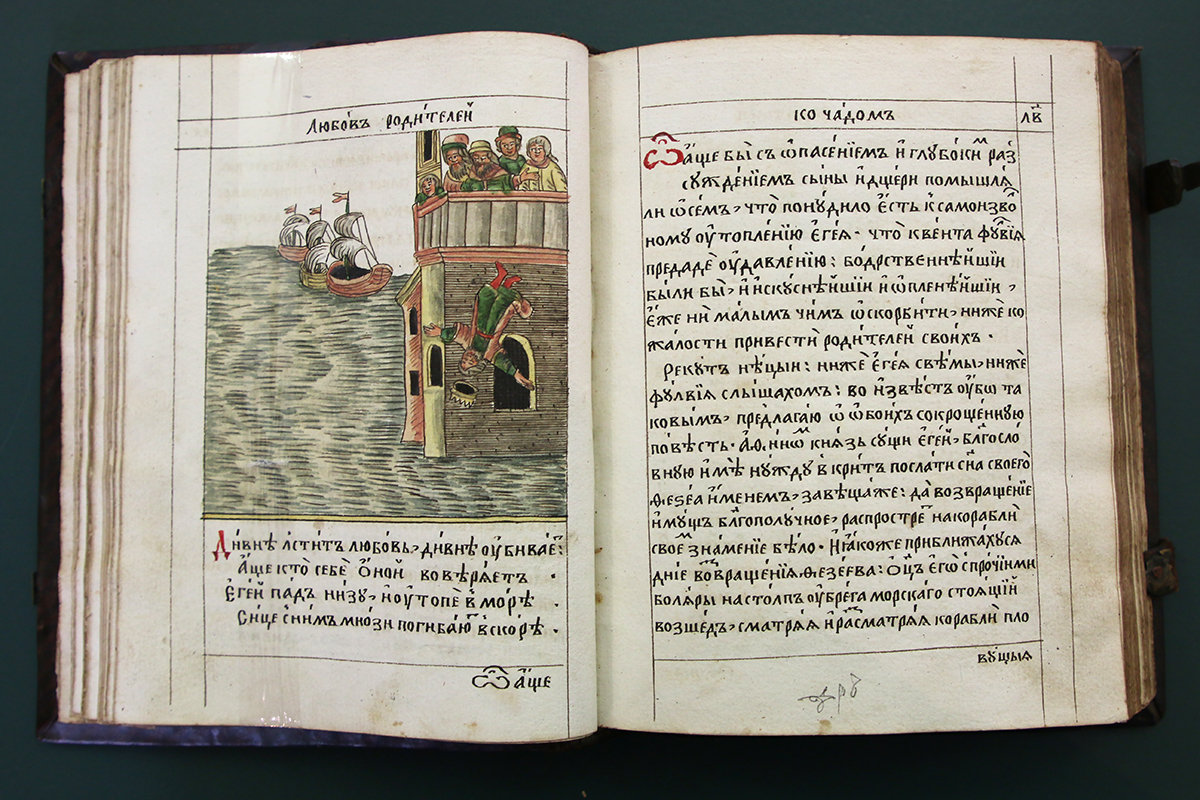 Любо́въ роди́телей
Ди́внѣ лсти́тъ любо́вь, ди́внѣ ᲂубива́е:
А́ще кто̀ себѐ о҆́ной во вѣрѧ́етъ ·
Є҆ге́й па́дъ ни́зу, и҆ ᲂутопѐ в мо́рѣ ·
Си́це с ни́мъ мно́зи погиба́ю в ско́рѣ ·
Ѽ а́ще
ко ча́домъ
л҃в
Ѽ а́ще бы̀ съ ѡ҆пасе́нїемъ и҆ глубо́ки раз
сꙋжде́нїемъ сы́ны и҆ дще́ри помышлѧ́
ли ѡ҆ се́мъ, что̀ понꙋ́дило є҆́сть к самоизво́
номꙋ ᲂутопле́нїю Є҆ге́ѧ · что̀ кве́нта фꙋ́лвїѧ
предадѐ ᲂудавле́нїю: бо́дрственнѣйшїи
бы́ли бы̀, и҆ и҆скꙋ́снѣйшїи и҆
є҆́же ни ма́лымъ чи́мъ ѡ҆скорби́ти, ниже́ ко
жа́лости привестѝ роди́телей свои́хъ ·
Рекꙋ́тъ нѣ́цыи: нижѐ Є҆ге́ѧ свѣ́мы, нижѐ
фꙋ́лвїѧ слы́шахомъ: во и҆звѣ́стъ ᲂу҆́бѡ та
ковы́мъ, предлага́ю ѡ҆ ѻ҆бои́хъ сокраще́ннꙋю
по́вѣсть · кнѧ́зь сꙋ́щи Є҆ге́й, бл҃госло́
внꙋю и҆мѣ̀ нꙋ́ждꙋ в кри́тъ посла́ти сн҃а своего̀
Ѳезе́а и҆́менемъ, завѣща́ же: да возвраще́нїе
и҆мꙋ́щъ бл҃гополꙋ́чное, распростре́ на кораблѝ
свое зна́менїе бѣ́ло · И҆ ꙗ҆́коже приближа́хꙋсѧ
дні́е возвраще́нїѧ Ѳезе́ева: ѻ҆ц҃ъ є҆гѡ̀ с про́чїими
болѧ́ры на сто́лпъ ᲂу бре́га морска́гѡ стоѧ́щїй
возше́дъ, смотрѧ́ѧ и҆ расма́трѧѧ кораблѝ пло
вꙋ́щыѧ